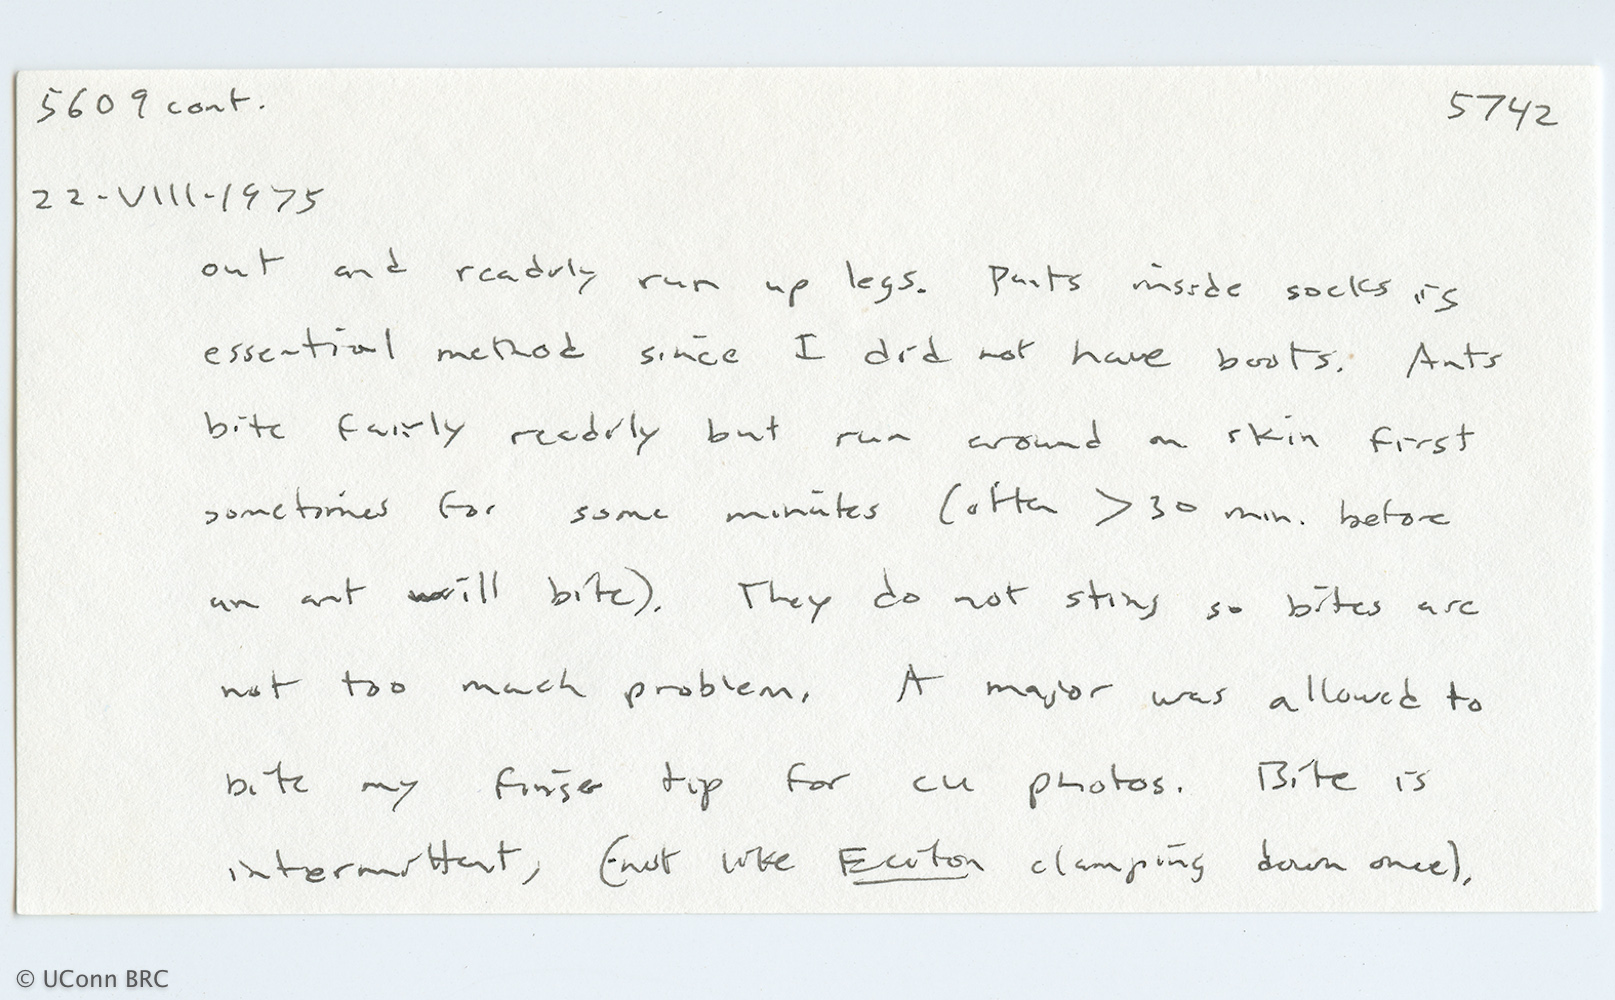 5609 cont.
5742
22-VIII-1975
out and readily run up legs. Pants inside socks is
essential method since I did not have boots. Ants
bite fairly readily but run around on skin first
sometimes for some minutes (often > 30 min. before
an ant will bite). They do not sting so bites are
not too much problem. A major was allowed to
bite my finger tip for cu photos. Bite is
intermittent, (not like Eciton clamping down once).
© UConn BRC